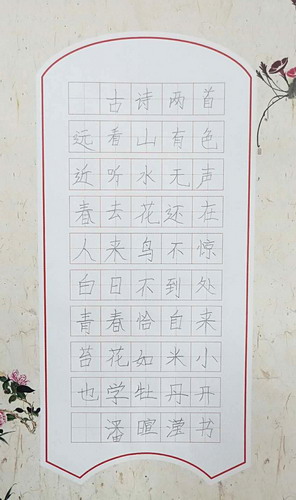 古诗两首
远看山有色
近听水无声
春去花还在
人来鸟不惊
白日不到处
青春恰自来
苔花如米小
也学牡丹开
潘暄滢书